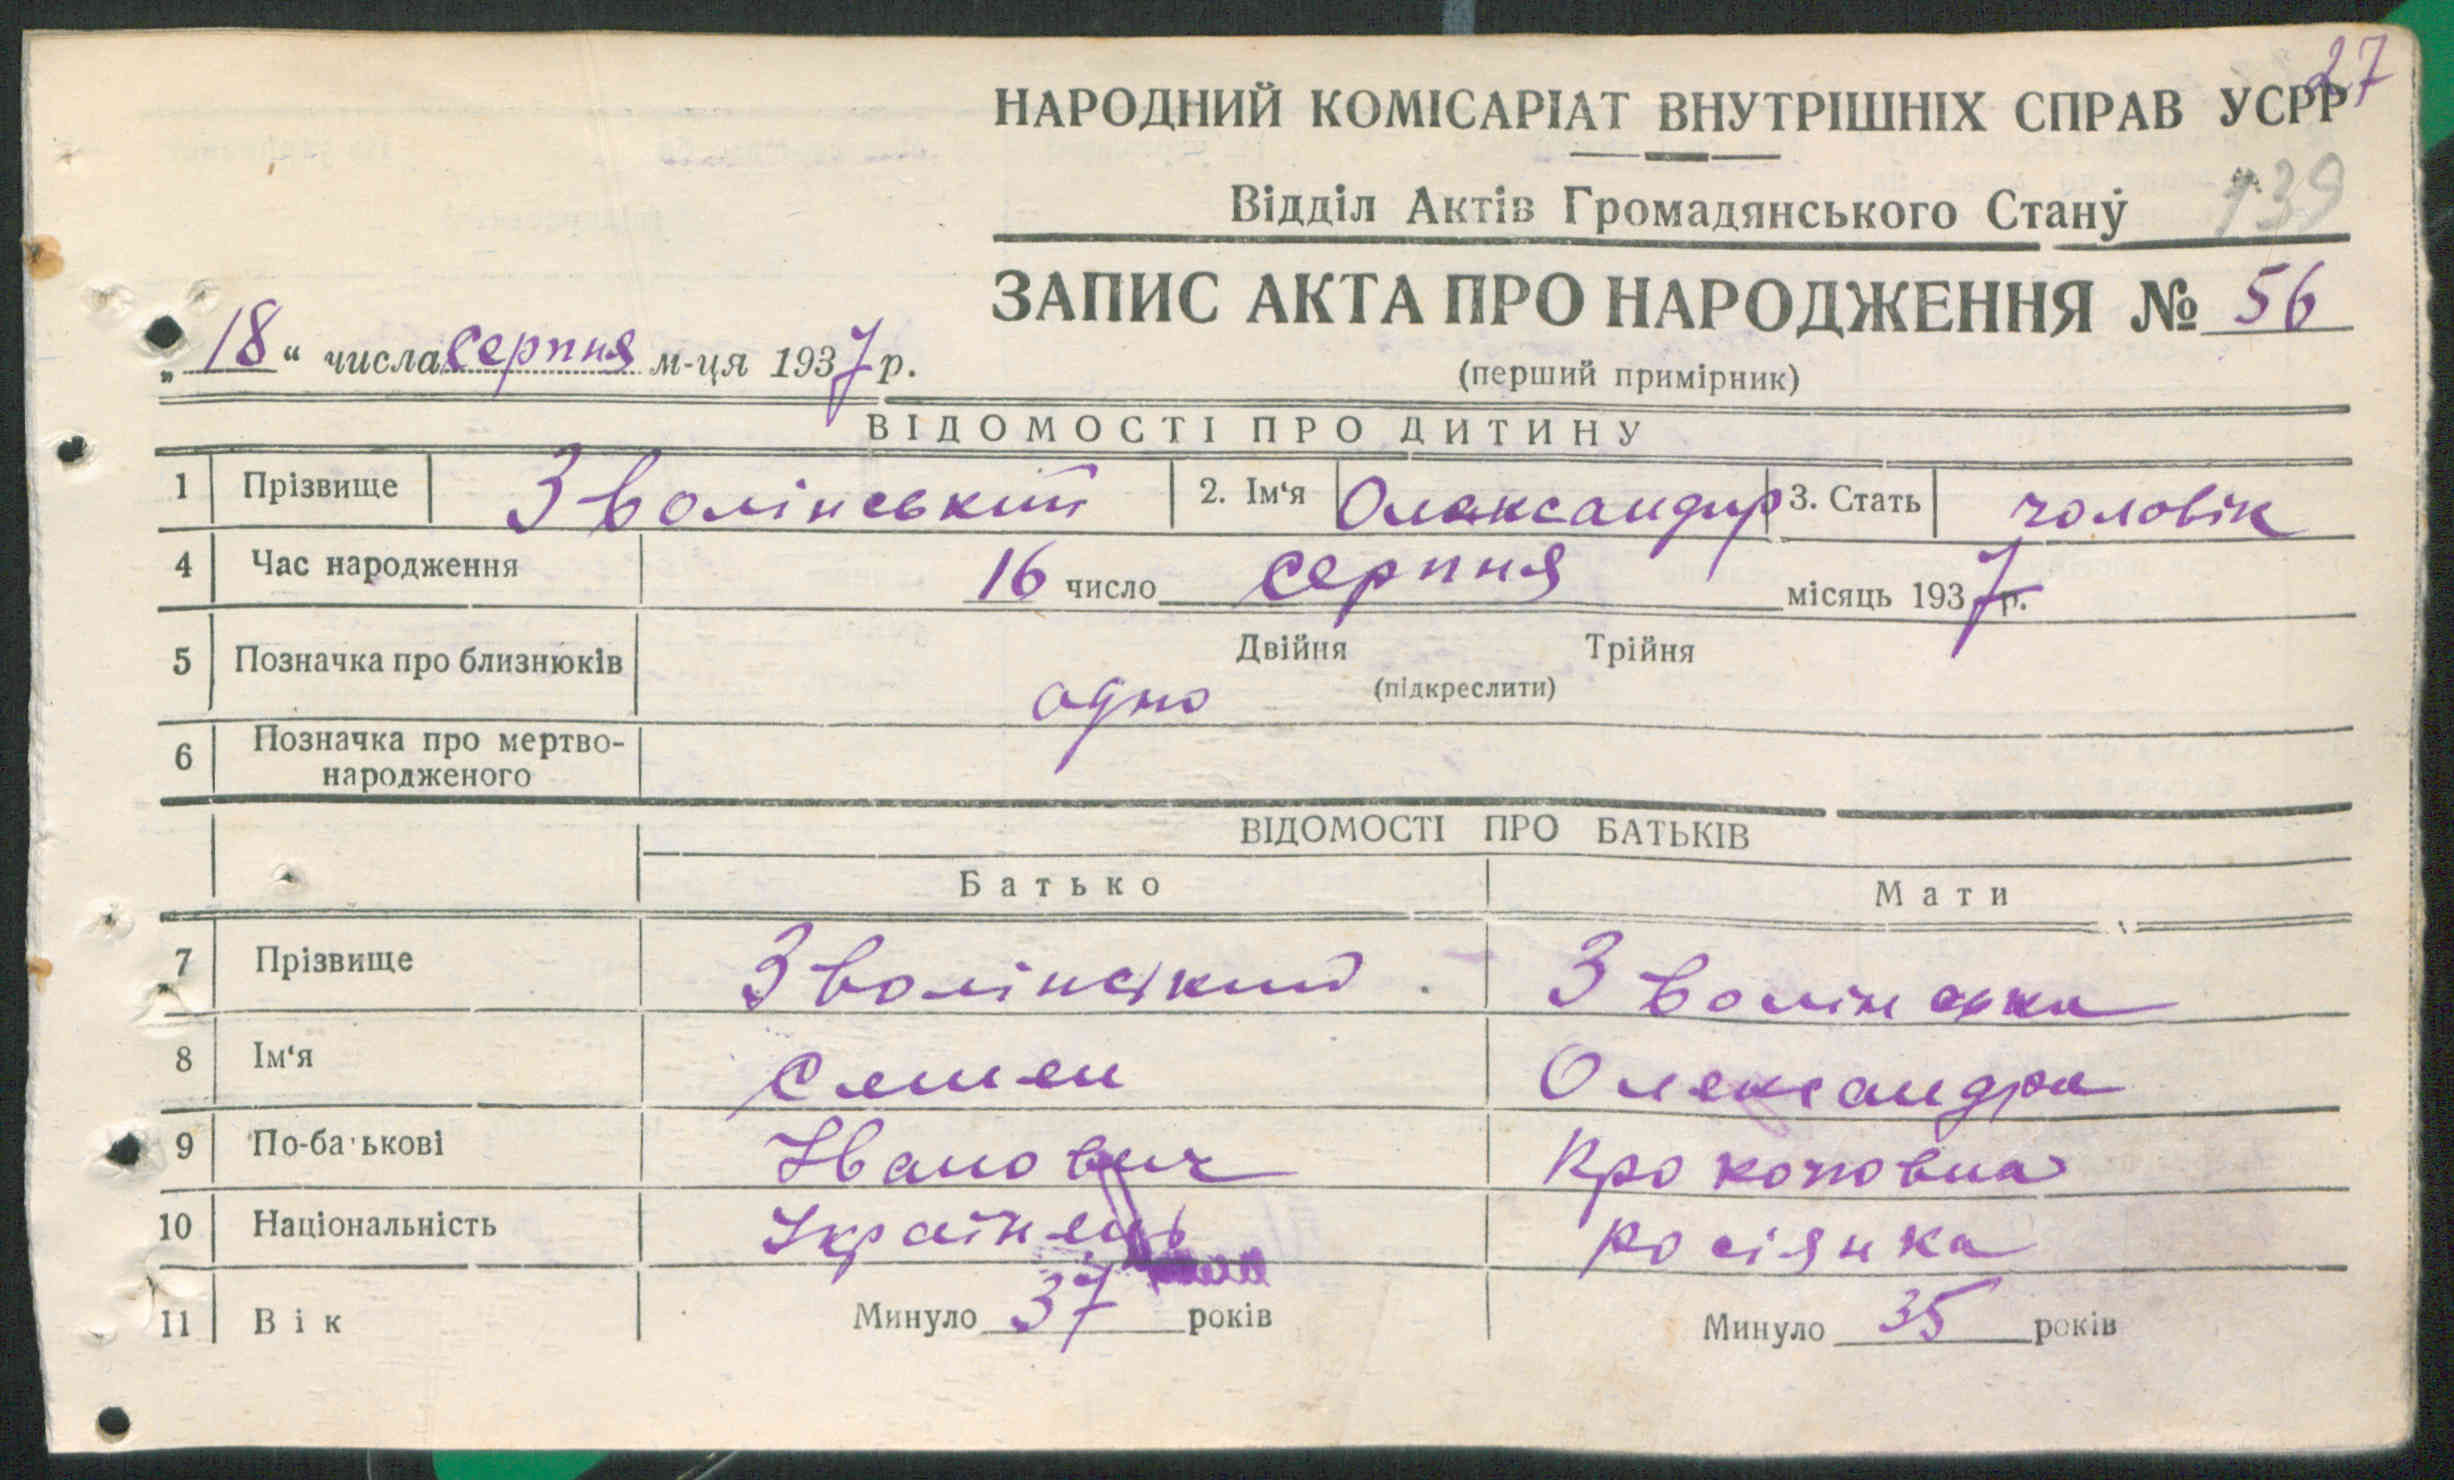 27
НАРОДНИЙ КОМІСАРІАТ ВНУТРІШНІХ СПРАВ УСРР
Відділ Актів Громадянського Стану 139
ЗАПИС АКТА ПРО НАРОДЖЕННЯ № 56
„18“ числа серпня м-ця 1937 р.
(перший примірник)
ВІДОМОСТІ ПРО ДИТИНУ
1 Прізвище Зволінський 2. Ім‘я Олександр 3. Стать чоловік
4 Час народження 16 число серпня місяць 1937 р.
5 Позначка про близнюків одно Двійня Трійня
(підкреслити)
6 Позначка про мертво-
народженого
ВІДОМОСТІ ПРО БАТЬКІВ
Батько Мати
7 Прізвище Зволінський Зволінська
8 Ім‘я Семен Олександра
9 По-батькові Іванович Прокоповна
10 Національність Українець росіянка
11 Вік Минуло 37 років Минуло 35 років